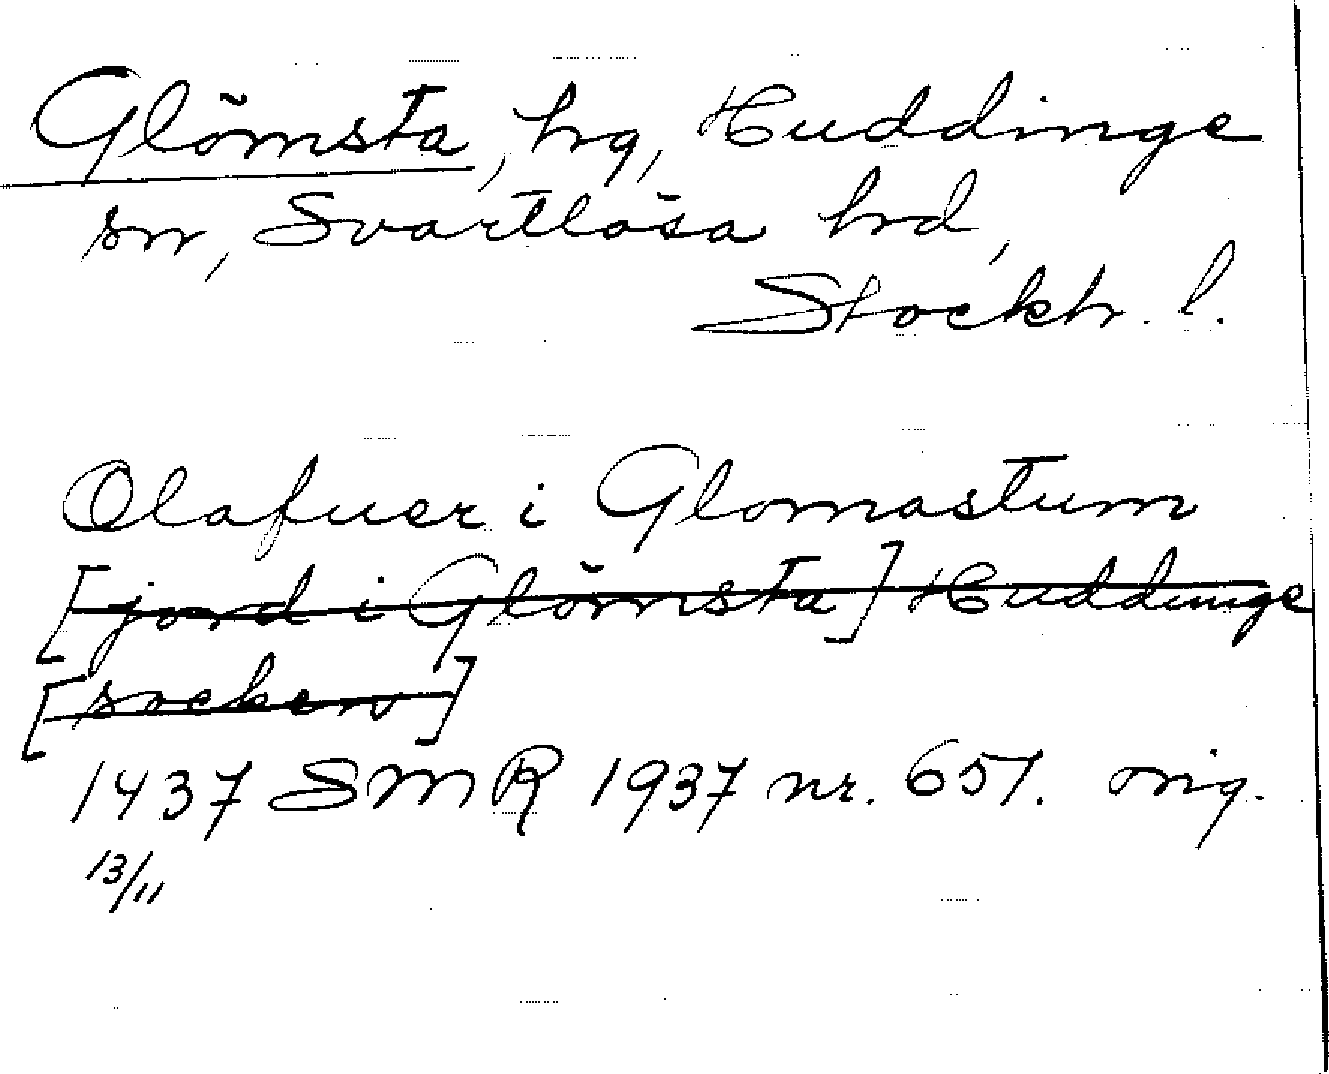 Glömsta, hg, Huddinge
sn, Svartlösa hd,
Stockh. l.
Olafuer i Glomastum
[jord i Glömsta] Huddinge
[socken]
1437 SMR 1937 nr. 657. orig.
13/11